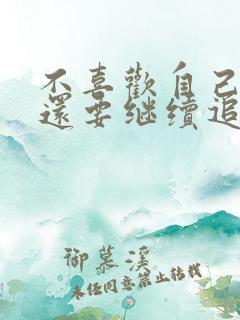 不喜歡自己
還要继续追
御慕溪
未经同意禁止转载